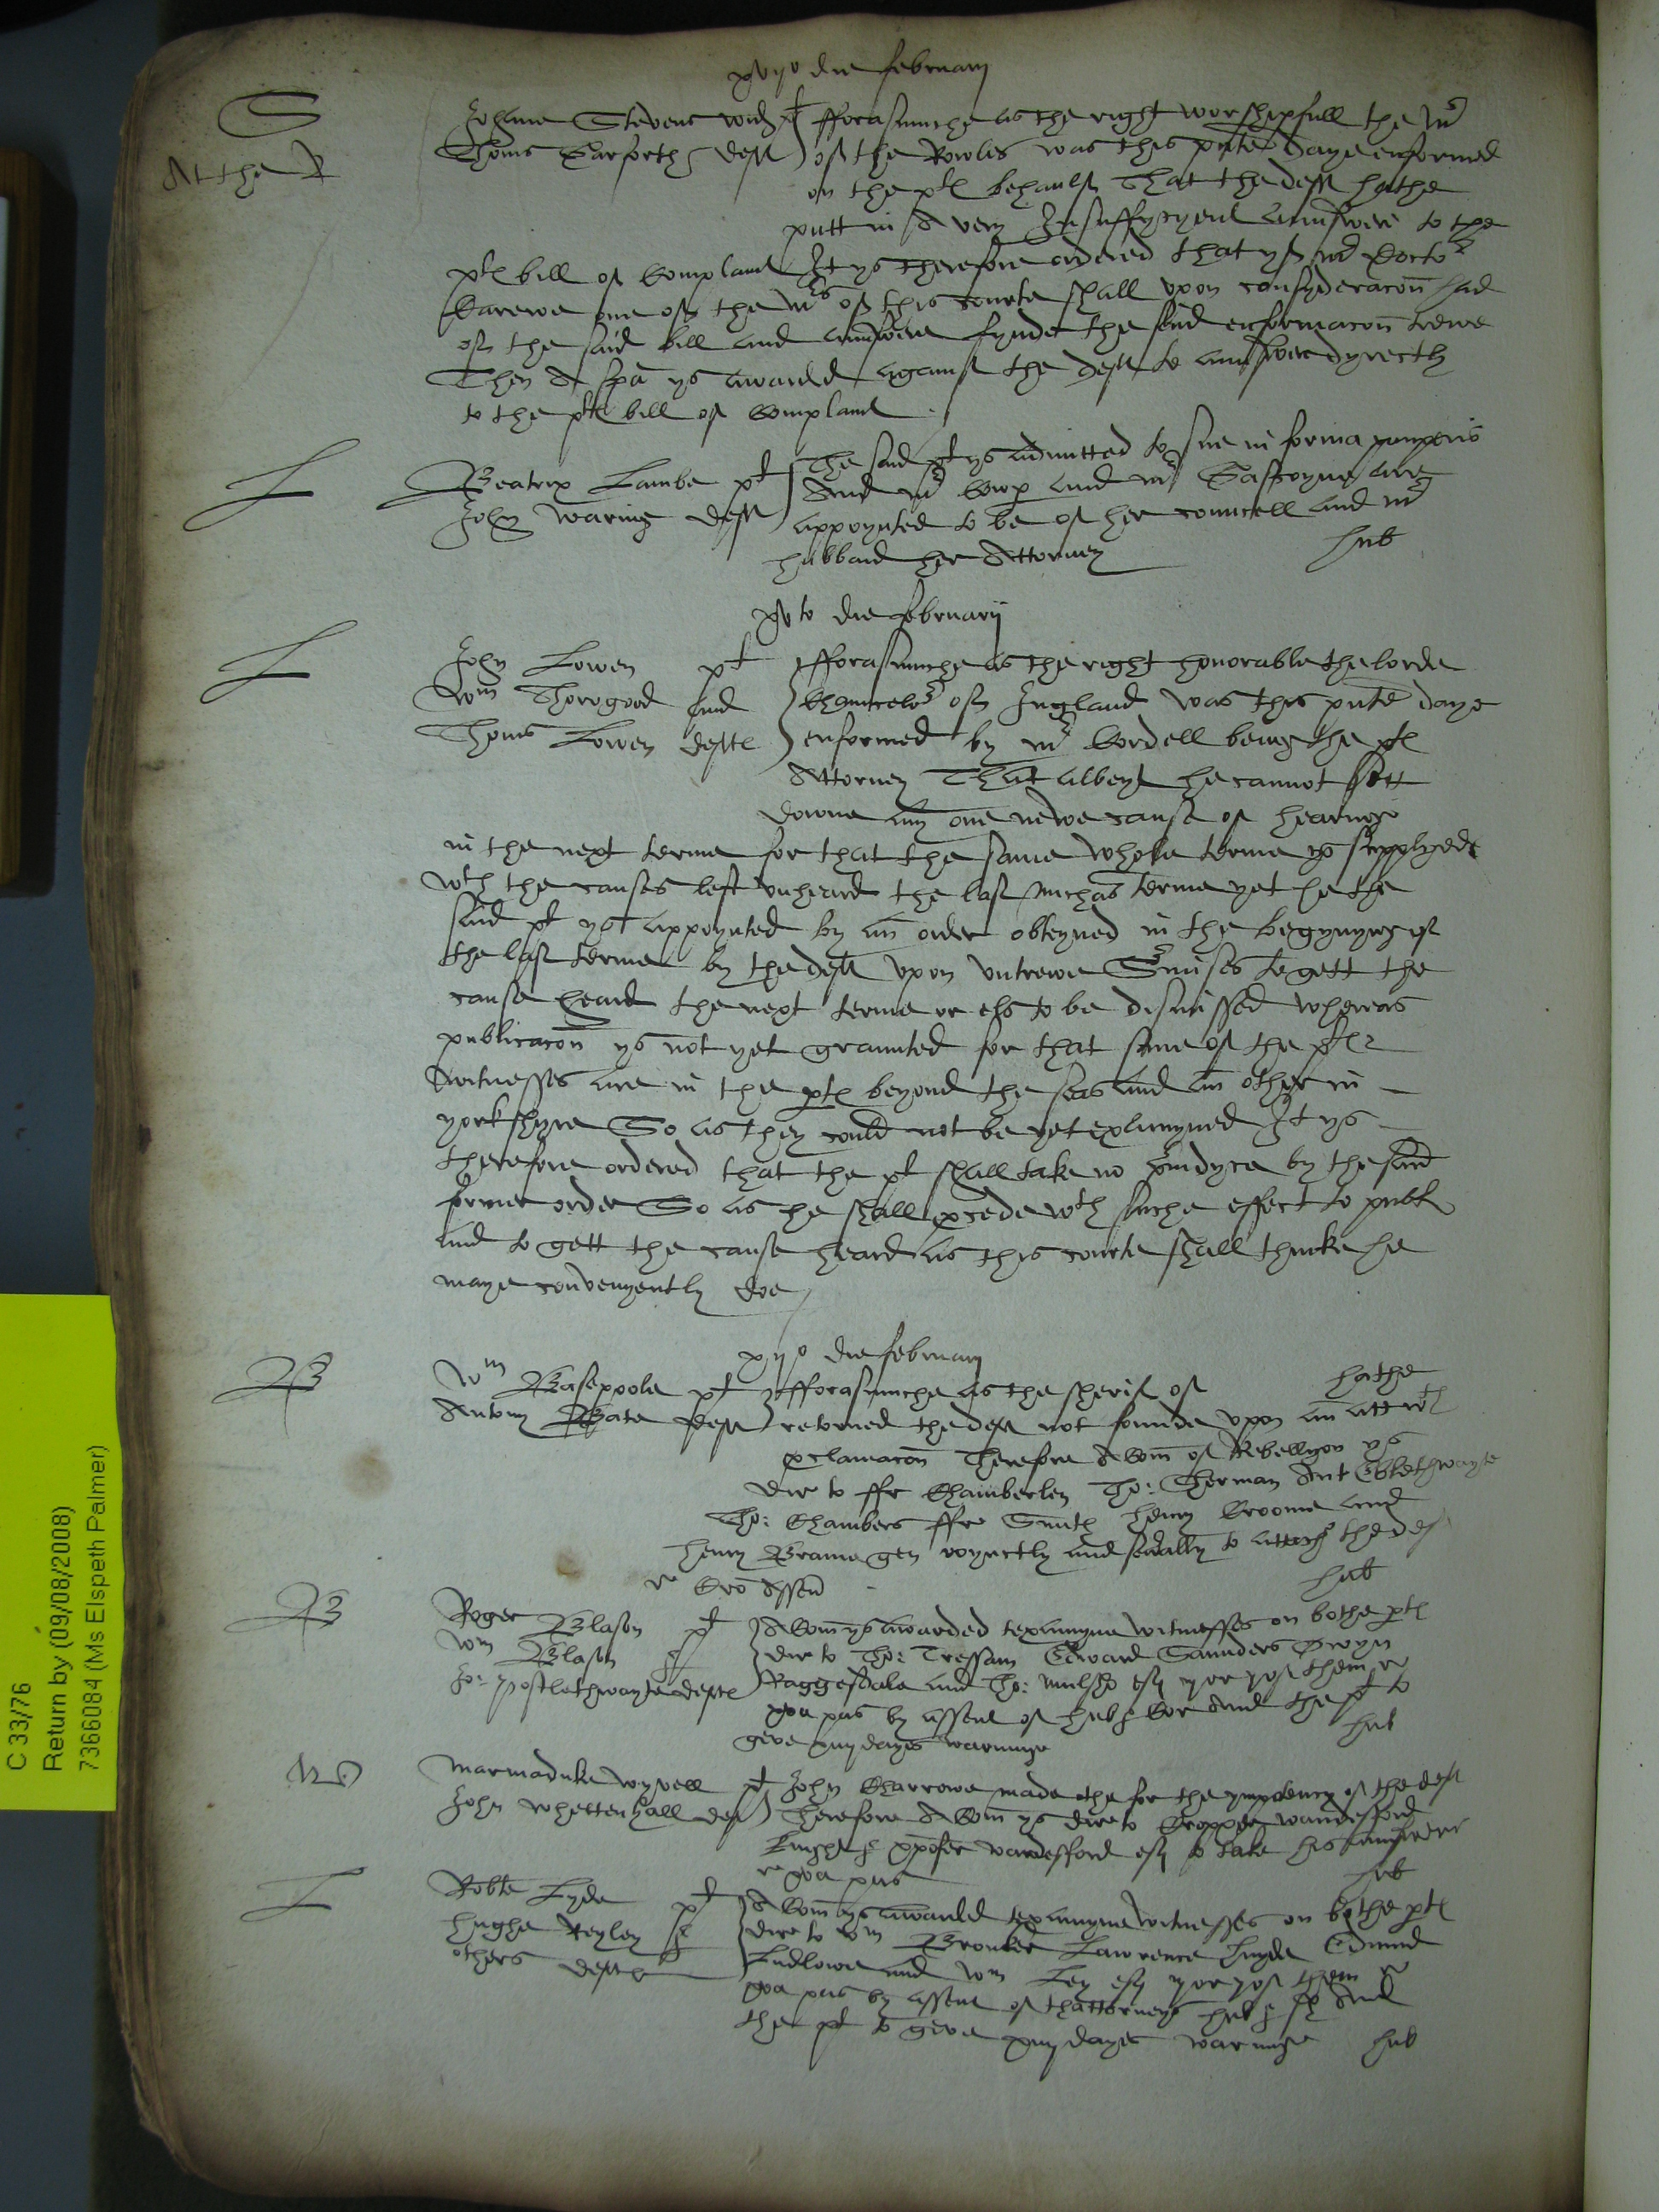 xvijo die februarij
S
Johanne Stevens wid plt fforasmuche as the right worshipfull the Mr
At the R
Thoms Garforth deft of the Rowles was this pnte daye enformed
on the pltes behaulf That the deft hathe
putt in A very Insuffycyent aunswere to the
pltes bill of Complaint It ys therefore ordered that yf mr Doctor
Carewe one of the Mrs of this courte shall vpon consyderacon had
of the said bill and aunswere fynde the said enformacon trewe
Then A spa ys awarded against the deft to aunswere dyrectly
to the pltes bill of Complaint
L
Beatrix Lambe plt The said plt ys admitted to sue in forma pauperis
John Waring deft And mr Cowp and mr Gascoyne are
appoynted to be of her councell and mr
hubbard her Attorney hub
xvto die februarij
L
John Lowen plt fforasmuche as the right honorable the lorde
Wm Thorogood and Chauncelor of England was this pnte daye
Thoms Lowen deftes enformed by mr Cordell being the pltes
Attorney That albeyt he cannot sett
downe any one newe cause of hearinge
in the next terme for that the same whole terme ys supplyed
wth the causes left vnheard the last michas terme yet he the
said plt ys appoynted by an order obteyned in the begynnyng of
the last terme by the deft vpon vntrewe Surmises to gett the
cause heard the next terme or els to be dismissed whereas
publicacon ys not yet graunted for that some of the pltes
witnesses are in the ptes beyond the seas and an other in
yorkshyre So as they could not be yet examyned It ys
therefore ordered that the plt shall take no preiudyce by the said
former order So as he shall procede wth suche effect to publ
and to gett the cause heard as this courte shall thincke he
maye convenyently doe
xijo die februarij
B
Wm Basepoole plt fforasmuche as the sherif of hathe
Antony Bate deft retorned the deft not founde vpon an att wth
proclamacon Therefore A Com of Rebellyon ys
dir to ffr Chamberlen Tho: Therman Ant Eblethwayte
Tho: Chambers ffr Smith henry Broome and
henry Brame gen ioynctly and seually to attach the deft
r Cro Assen hub
B
Roger Blason plt A Com ys awarded to examyne witnesses on bothe ptes
Wm Blason & dir to Tho: Tressam Edward Saunders Owyn
Jo: postlethwayte deftes Raggesdale and Tho: mulsho esq iiij or ij of them r
xva pas by assent of hub & Cor And the plt to
geve xiiij dayes warninge hub
W
Marmaduke Wyvell plt John Charrowe made othe for the ympotency of the deft
John Whettenhall deft Therefore A Com ys dir to Cropper wandesford
knight & xpofer vandesfford esq to take his aunswere
r xva pas hub
L
Robte Lyde plt A Com ys awarded to examyne witnesses on bothe ptes
hughe Keyley & dir to Wm Brouker Lawrence hyde Edmund
others deftes Ludlowe and Wm Ley esq iiij or ij of them r
xva pas by assent of thattorneys hub & And
the plt to geve xiiij dayes warninge hub
C 33/76
Return by (09/08/2008)
7366084 (Ms Elspeth Palmer)